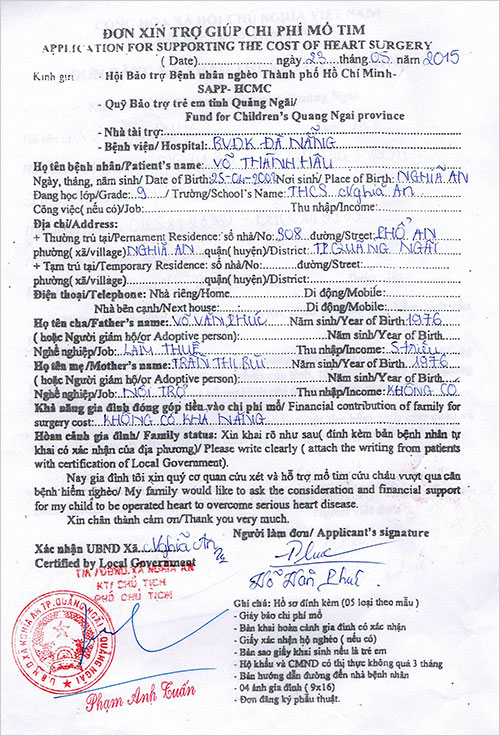 ĐƠN XIN TRỢ GIÚP CHI PHÍ MỔ TIM
APPLICATION FOR SUPPORTING THE COST OF HEART SURGERY
( Date) ngày 23 tháng 05 năm 2015
Kính gửi - Hội Bảo trợ Bệnh nhân nghèo Thành phố Hồ Chí Minh-
SAPP- HCMC
- Quỹ Bảo trợ trẻ em tỉnh Quảng Ngãi/
Fund for Children's Quang Ngai province
- Nhà tài trợ:
- Bệnh viện/ Hospital: BVĐK ĐÀ NẴNG
Họ tên bệnh nhân/Patient's name: VÕ THÀNH HẬU
Ngày, tháng, năm sinh/ Date of Birth: 25-04-2002 Nơi sinh/ Place of Birth: NGHĨA AN
Đang học lớp/Grade: 9 / Trường/School's Name: THCS Nghĩa An
Công việc( nếu có)/Job: Thu nhập/Income:
Địa chỉ/Address:
+ Thường trú tại/Pernament Residence: số nhà/No: 908 đường/Street: PHỔ AN
phường( xã/village) NGHĨA AN quận( huyện)/District: TP.QUẢNG NGÃI
+ Tạm trú tại/Temporary Residence: số nhà/No: đường/Street:
phường( xã/village) quận( huyện)/District:
Điện thoại/Telephone: Nhà riêng/Home Di động/Mobile:
Nhà bên cạnh/Next house: Di động/Mobile:
Họ tên cha/Father's name: VÕ VĂN PHÚC Năm sinh/Year of Birth 1976
( hoặc Người giám hộ/or Adoptive person): Năm sinh/Year of Birth
Nghề nghiệp/Job: LÀM THUÊ Thu nhập/Income:
Họ tên mẹ/Mother's name: TRẦN THỊ Năm sinh/Year of Birth 1976
( hoặc Người giám hộ/or Adoptive person): Năm sinh/Year of Birth
Nghề nghiệp/Job: NỘI TRỢ Thu nhập/Income: KHÔNG CÓ
Khả năng gia đình đóng góp tiền vào chi phí mổ/ Financial contribution of family for
surgery cost: KHÔNG CÓ KHẢ NĂNG
Hoàn cảnh gia đình/ Family status: Xin khai rõ như sau( đính kèm bản bệnh nhân tự
khai có xác nhận của địa phương)/ Please write clearly ( attach the writing from patients
with certification of Local Government).
Nay gia đình tôi xin quý cơ quan cứu xét và hỗ trợ mổ tim cứu cháu vượt qua căn
bệnh hiểm nghèo/ My family would like to ask the consideration and financial support
for my child to be operated heart to overcome serious heart disease.
Xin chân thành cảm ơn/Thank you very much.
Người làm đơn/ Applicant's signature
Xác nhận UBND Xã Nghĩa An
Certified by Local Government
Phúc
TM/UBND.XÃ NGHĨA AN
KT/ CHỦ TỊCH
PHÓ CHỦ TỊCH
Võ Văn Phúc
U.B.N.D XÃ NGHĨA AN T.P.QUẢNG NGÃI T.QUẢNG NGÃI
Phạm Anh Tuấn
Ghi chú: Hồ sơ đính kèm (05 loại theo mẫu )
- Giấy báo chi phí mổ
- Bản khai hoàn cảnh gia đình có xác nhận
- Giấy xác nhận hộ nghèo ( nếu có)
- Bản sao giấy khai sinh nếu là trẻ em
- Hộ khẩu và CMND có thị thực không quá 3 tháng
- Bản hướng dẫn đường đến nhà bệnh nhân
- 04 ảnh gia đình ( 9x16)
- Đơn đăng ký phẫu thuật.